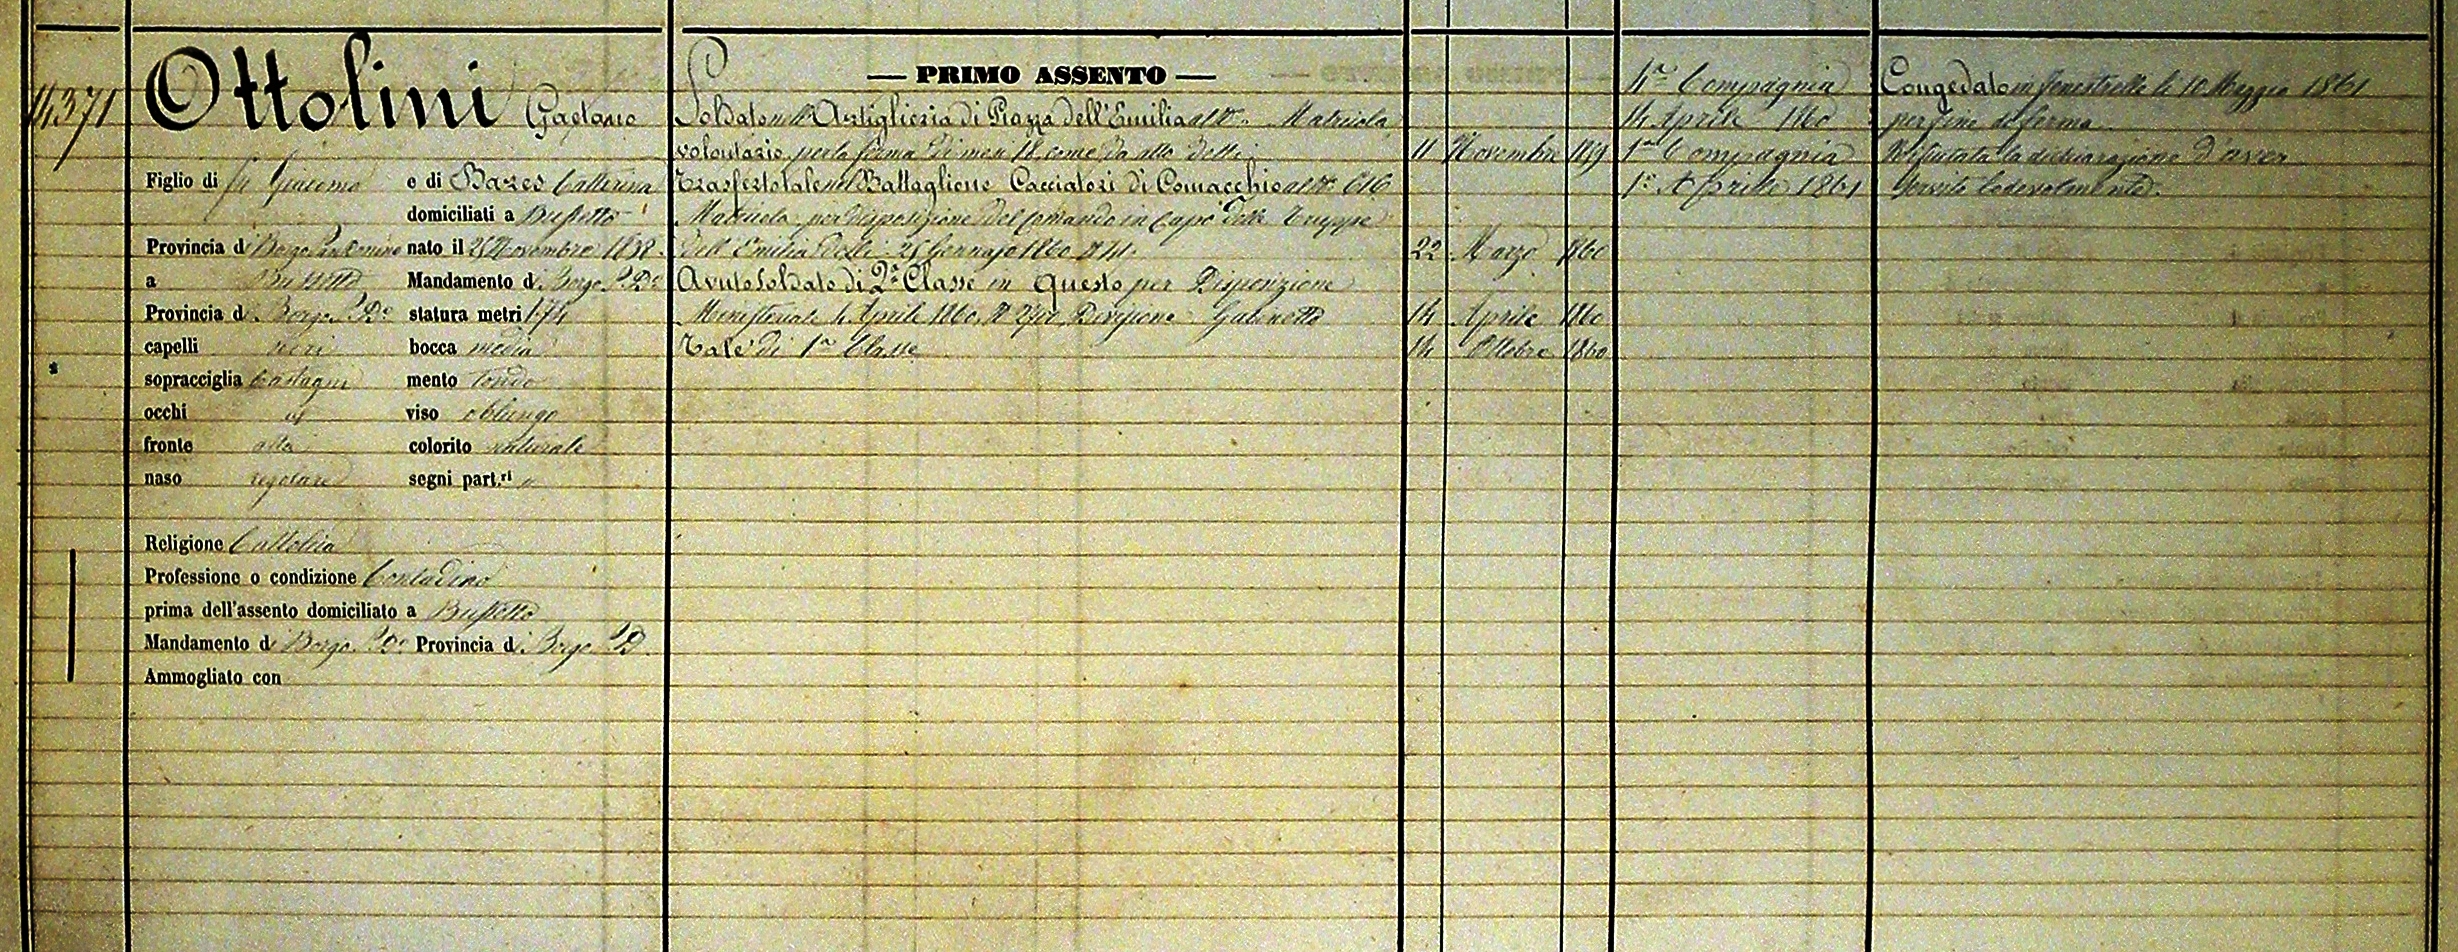 14371
Ottolini Gaetano
Figlio di fu Giacomo e di Bares Catterina
domiciliati a Bussetto
Provincia di Borgo San Donnino nato il 25 Novembre 1838
a Bussetto Mandamento di Borgo S. Do
Provincia di Borgo S. Do statura metri 1.74
capelli neri bocca media
sopracciglia castagni mento tondo
occhi id viso oblungo
fronte alta colorito naturale
naso regolare segni part.ri "
Religione Cattolica
Professione o condizione Contadino
prima dell'assento domiciliato a Bussetto
Mandamento di Borgo S. Do Provincia di Borgo S. D
Ammogliato con
— PRIMO ASSENTO —
Soldato nell'Artiglieria di Piazza dell'Emilia al No Matricola
volontario per la ferma di mesi 18 come da atto delli 11 Novembre 1859
Trasferto tale nel Battaglione Cacciatori di Comacchio al No 616
Matricola per disposizione del Comando in Capo delle Truppe
dell'Emilia delli 25 Gennajo 1860 22 Marzo 1860
Avuto Soldato di 2a Classe in Questo per Disposizione
Ministeriale 4 Aprile 1860, Divisione Gabinetto 14 Aprile 1860
Tale di 1a Classe 14 Ottobre 1860
4a Compagnia
14 Aprile 1860
1a Compagnia
1o Aprile 1861
Congedato in Fenestrelle li 10 Maggio 1861
per fine di ferma
Rifiutata la dichiarazione d'aver
servito lodevolmente.